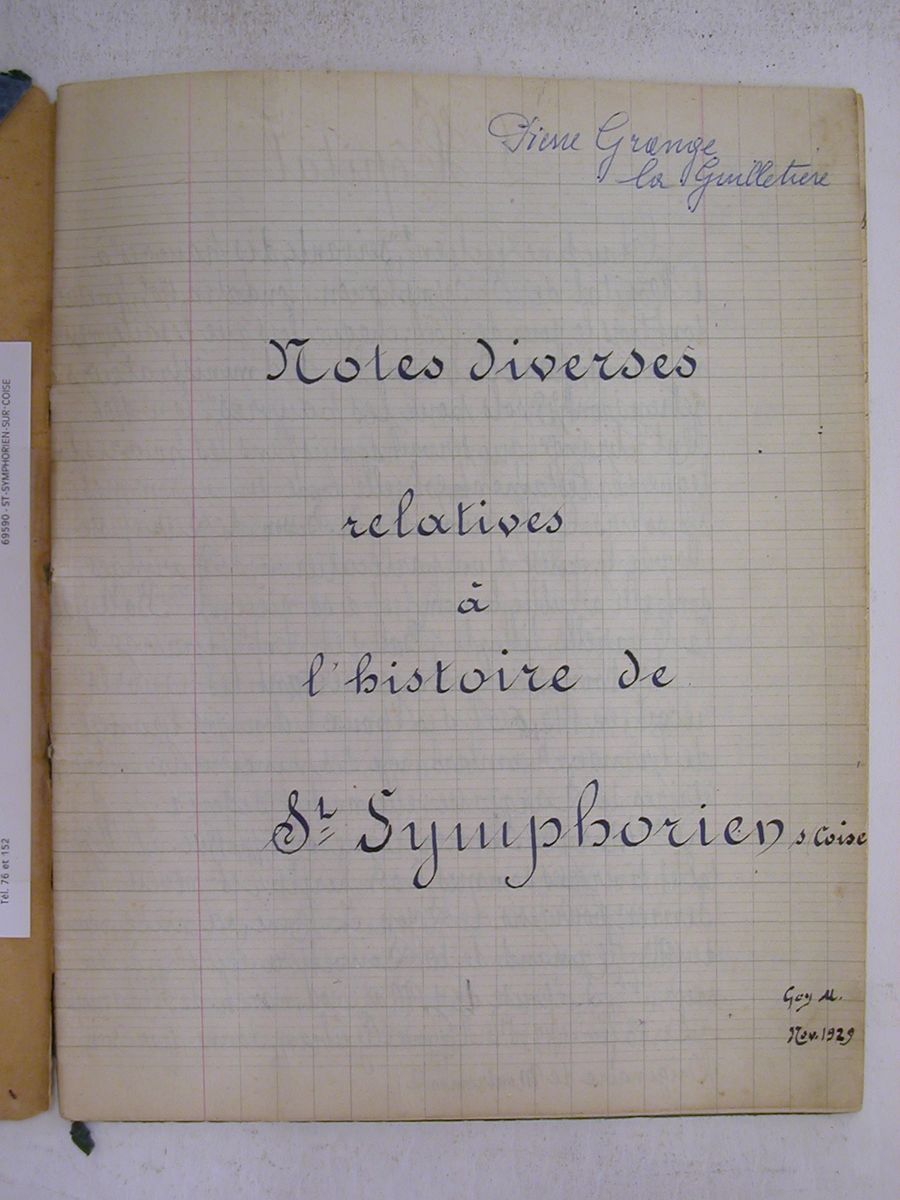 Pierre Grange
la Guilletière
Notes diverses
relatives
à
l'histoire de
St Symphorien s Coise
Goy M.
Nov. 1929
69590 - ST-SYMPHORIEN-SUR-COISE
Tél. 76 et 152